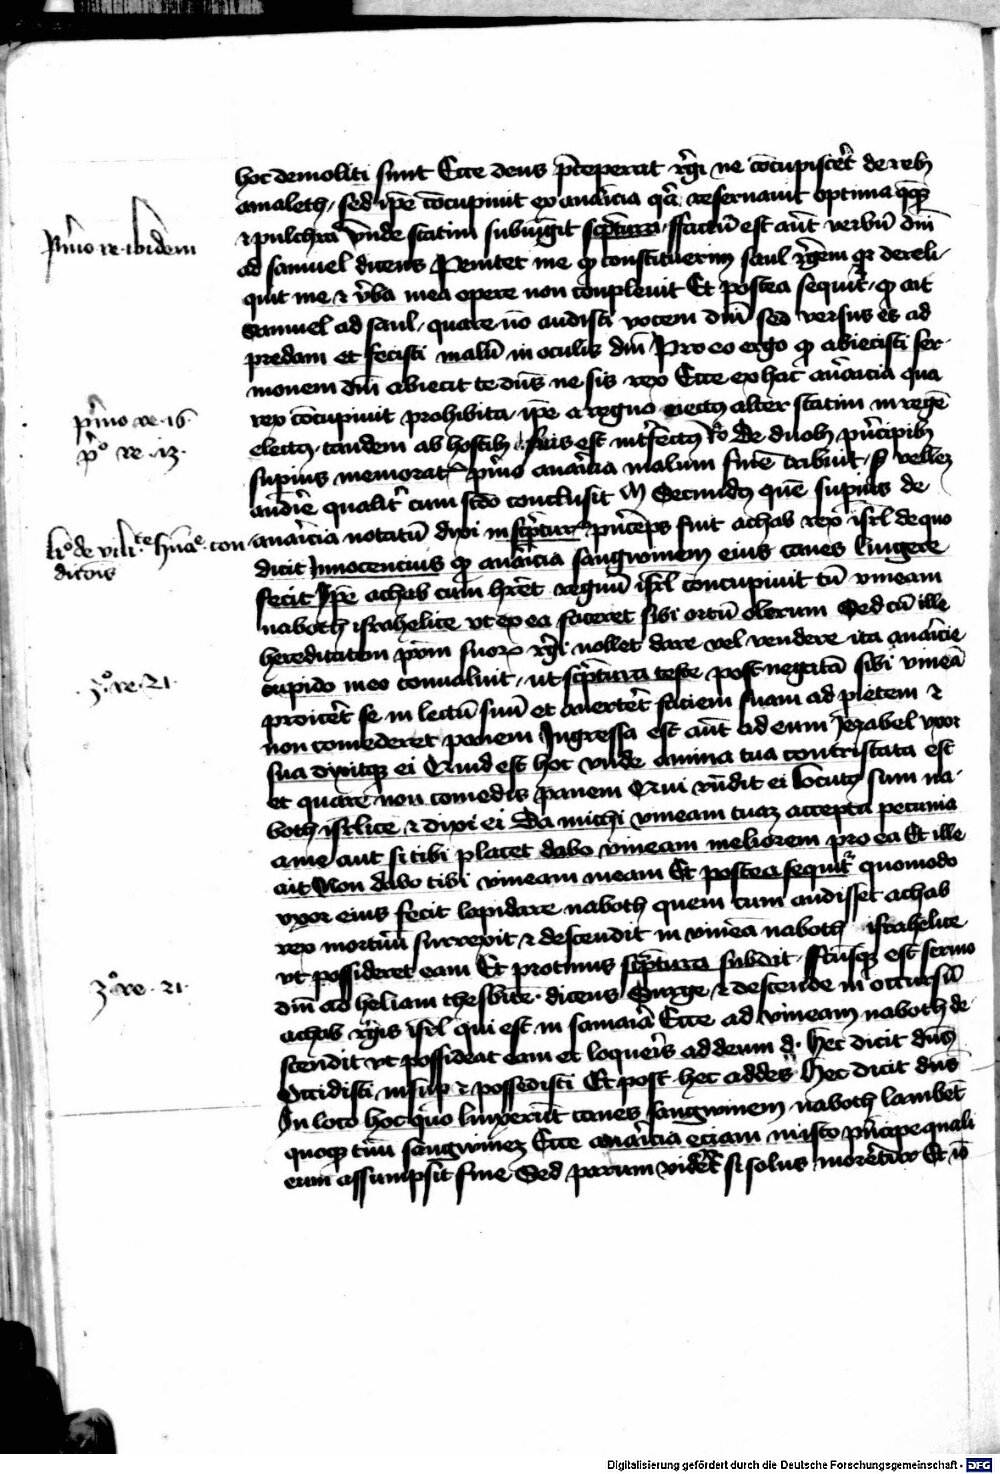 hoc demoliti sunt Ecce deus p̄ceperat r̄gi ne cōcupiscēt de rebꝫ
amaleth / sed ip̄e cōcupiuit ex auaricia q̄ reseruauit optima qqꝫ
⁊ pulchra vn̄de statim subiūgit sc̄ptura / ffactū est aūt verbū dnī
ad samuel dicens Penitet me qꝫ constituerim saul r̄gem qr dereli-
quit me ⁊ v̄ba mea opere non conpleuit Et postea sequit̄ / qꝫ ait
Samuel ad saul / quare nō audisti vocem dnī sed versus es ad
predam et fecisti malū in oculis dnī Pro eo ergo qꝫ abiecisti ser-
monem dnī abiecit te dn̄s ne sis rex Ecce ex hac auaricia qua
rex cōcupiuit prohibita / ip̄e a regno eiectꝰ alter statim in regē
electꝰ / tandem ab hostibꝫ suis est int̄fectꝰ De duobꝫ pn̄cipibꝫ
supius memorat̄ pimo auaricia malum finē tribuit / vellez
audire qualit̄ cum scdo conclusit M Secundꝰ quē supius de
auaricia notatū dixi in sc̄ptur pn̄ceps fuit achab rex isrl de quo
dicit Innocencius qꝫ auaricia sangwinem eius canes lingere
fecit Ip̄e achab cum hr̄et regnū isrl concupiuit tū vineam
naboth israhelite vt ex ea faceret sibi ortū olerum Sed cū ille
hereditatem pr̄m suoꝝ r̄gi nollet dare vel vendere ita auaricie
cupido in eo conualuit / ut sc̄ptura teste / post negatā sibi vineā
proicēt se in lectū suū et auertēt faciem suam ad pietem ⁊
non comederet panem Ingressa est aūt ad eum Jezabel vxor
sua dixitqꝫ ei Quid est hoc vnde anima tua contristata est
et quare non comedis panem Qui rn̄dit ei locutꝰ sum na-
both isrlite ⁊ dixi ei Da michi vineam tuaꝫ accepta pecunia
a me aut si tibi placet dabo vineam meliorem pro ea Et ille
ait Non dabo tibi vineam meam Et postea sequit̄ quomodo
vxor eius fecit lapidare naboth quem cum audisset achab
rex mortuū surrexit ⁊ descendit in vineā naboth israhelite
vt possideret eam Et protinus sc̄ptura subdit / ffctusqꝫ est sermo
dnī ad heliam thesbitē / dicens Surge ⁊ descende in occursū
achab r̄gis isrl qui est in samaria Ecce ad vineam naboth de-
scendit vt possideat eam et loqueris ad deum d. Hec dicit dn̄s
Occidisti insup ⁊ possedisti Et post hec addes Hec dicit dn̄s
In loco hoc quo linxerūt canes sangwinem naboth lambēt
quoqꝫ tuū sangwineꝫ Ecce auaricia eciam in isto pn̄cipe quali
eum assumpsit fine Sed parum videt̄ si solus moret̄ur Et iō
pimo re. ibidem
pimo re. 16
pº re. 13.
liº de vili.te hūae con
dicōis
3º. re. 21.
3º. re. 21.
Digitalisierung gefördert durch die Deutsche Forschungsgemeinschaft - DFG